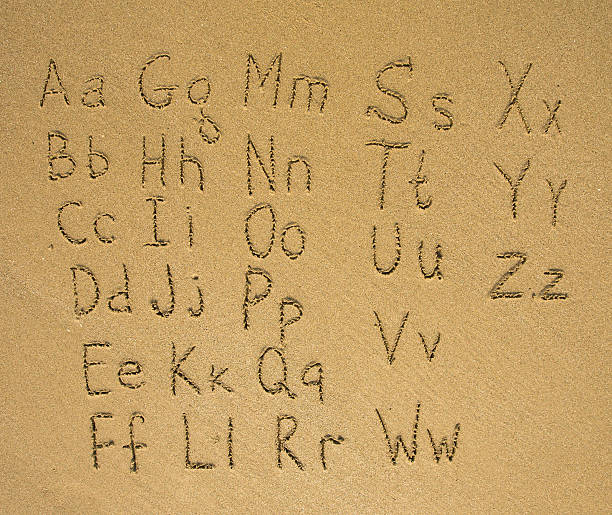 Aa Gg Mm Ss Xx
Bb Hh Nn Tt Yy
Cc Ii Oo Uu Zz
Dd Jj Pp Vv
Ee Kk Qq Ww
Ff Ll Rr